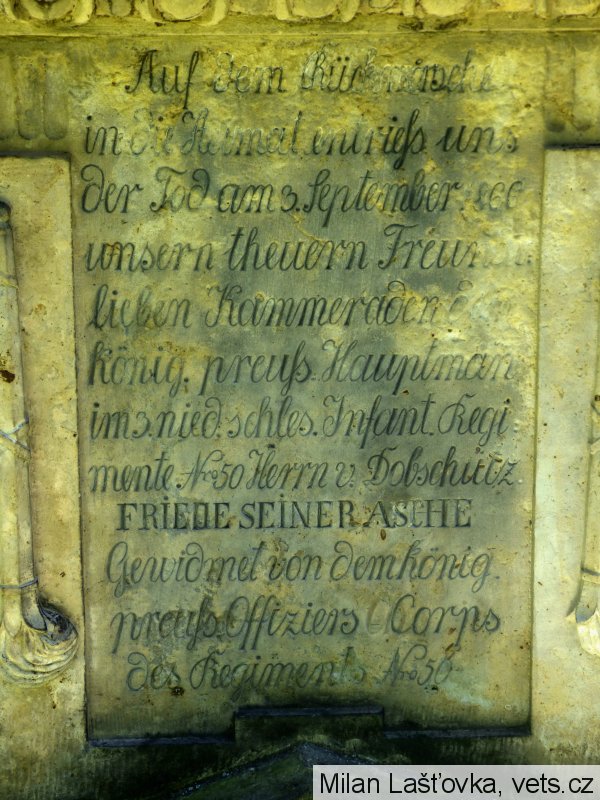 Auf dem Rückmarsche
in die Heimat entriefs uns
der Tod am 3. September 1866
unsern theuern Freund
lieben Kammeraden den
könig. preuß. Hauptman
im 3. nied. schles. Infant. Regi-
mente No. 50 Herrn v. Dobschütz.
FRIEDE SEINER ASCHE
Gewidmet von dem könig.
preuß. Offiziers Corps
des Regiments No. 50
Milan Lašťovka, vets.cz